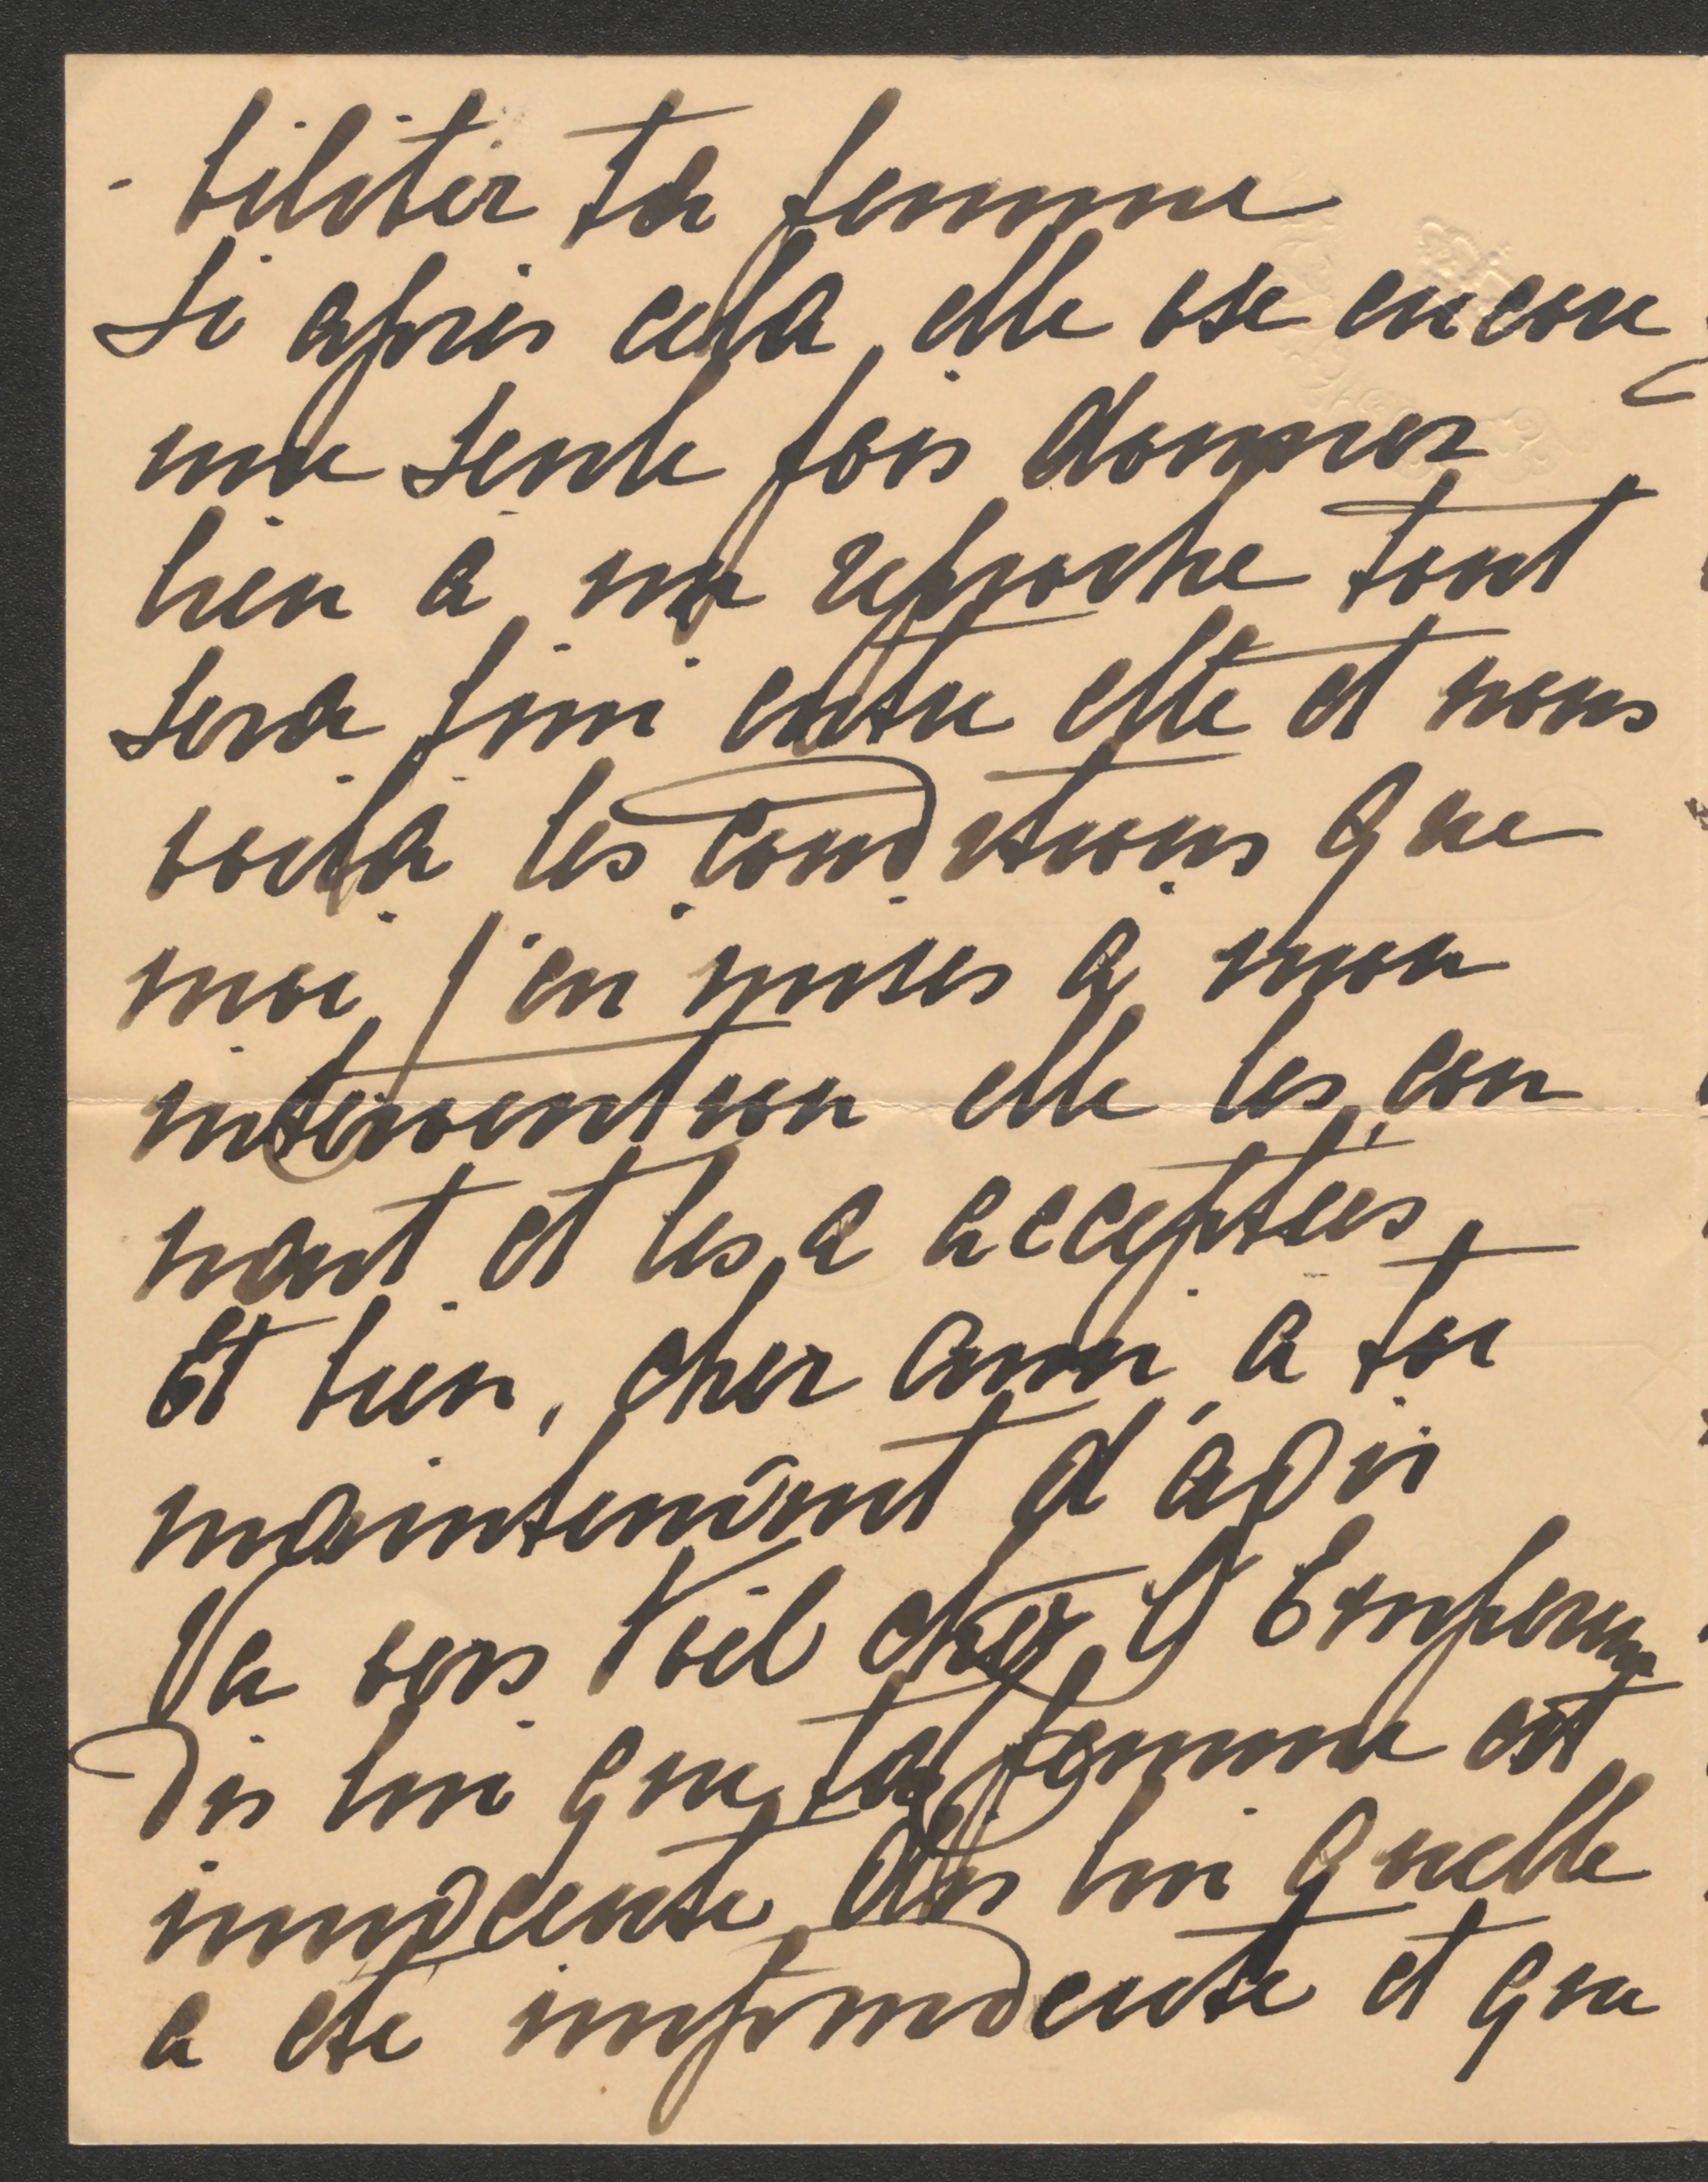 - biliter ta femme
Si après cela, elle ose encore
une seule fois donner
lieu à un reproche tout
sera fini entre elle et nous
voilà les conditions que
moi j'en mises à mon
intervention elle les con
nait et les a acceptées,
Et bien, cher ami, a toi
maintenant d'agir
Va vers Noël chez l'Empereur
Dis lui que ta femme est
innocente dis lui quelle
a été imprudente et que